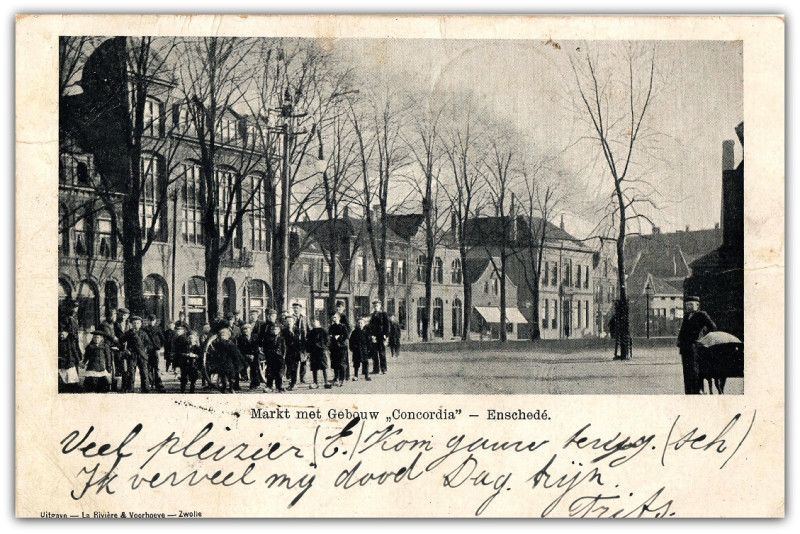 Markt met Gebouw „Concordia” – Enschedé.
Veel pleizier (E.) Kom gauw terug. (sch)
Ik verveel mij dood Dag tijn.
Frits.
Uitgave — La Rivière & Voorhoeve — Zwolle